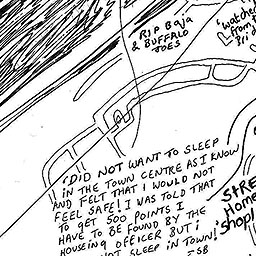 RIP Baja
& BUFFALO
JOES
'watch
from t
'DID NOT WANT TO SLEEP
IN THE TOWN CENTRE AS I KNOW
AND FELT THAT I WOULD NOT
FEEL SAFE! I WAS TOLD THAT
TO GET 500 POINTS I
HAVE TO BE FOUND BY THE
HOUSEING OFFICER BUT i
NOT SLEEP IN TOWN!'
SB
STRE
Home
Shop